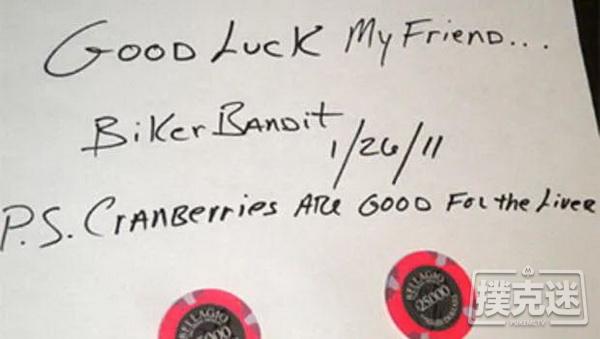 GOOD LUCK My Friend...
Biker BANdit
1/26/11
P.S. CRANBerries ARe GOOD FOR the Liver
BELLAGIO
BELLAGIO
$25000
撲克迷
POKEMI.TV